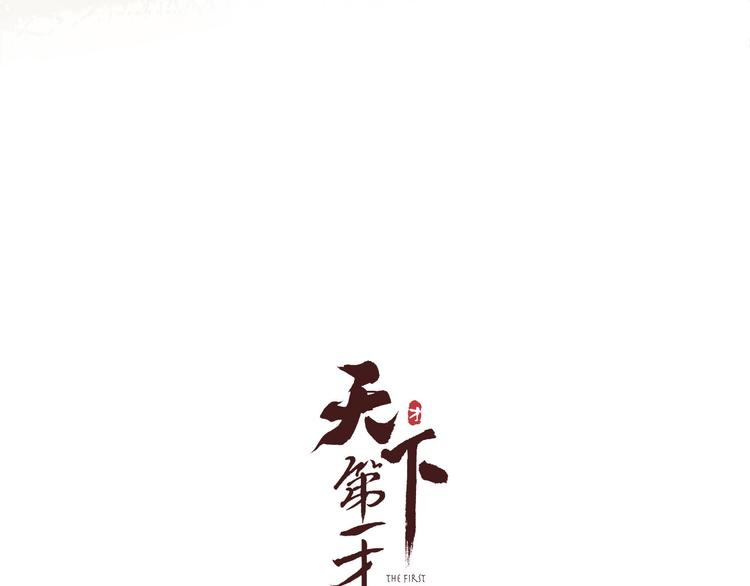 天下
第一才
才
THE FIRST